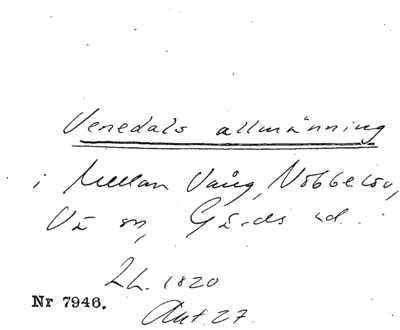 Venedals allmänning
i Mellan Vång, Nöbbelöv,
Vä sn, Gärds hd.
LL. 1820
Akt 27.
Nr 7946.